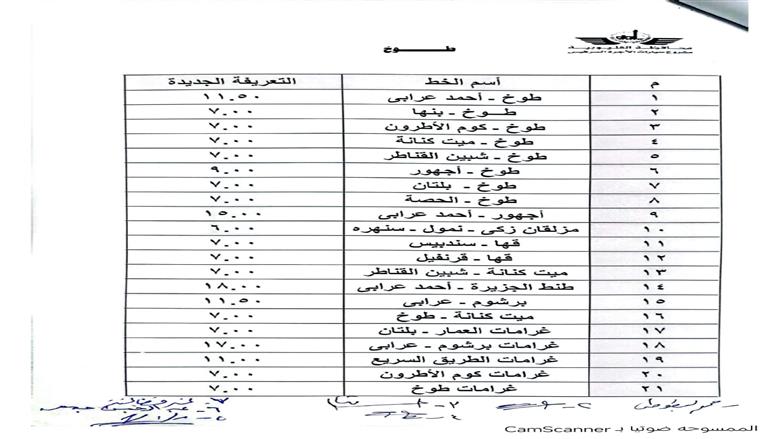 محافظة القليوبية
مشروع سيارات الأجرة السرفيس
طـــــوخ
م أسم الخط التعريفة الجديدة
١ طوخ - أحمد عرابى ١١.٥٠
٢ طـوخ - بنها ٧.٠٠
٣ طوخ - كوم الأطرون ٧.٠٠
٤ طوخ - ميت كنانة ٧.٠٠
٥ طوخ - شبين القناطر ٧.٠٠
٦ طوخ - أجهور ٩.٠٠
٧ طوخ - بلتان ٧.٠٠
٨ طوخ - الحصة ٧.٠٠
٩ أجهور - أحمد عرابى ١٥.٠٠
١٠ مزلقان زكى - نمول - سنهره ٦.٠٠
١١ قها - سندبيس ٧.٠٠
١٢ قها - قرنفيل ٧.٠٠
١٣ ميت كنانة - شبين القناطر ٧.٠٠
١٤ طنط الجزيرة - أحمد عرابى ١٨.٠٠
١٥ برشوم - عرابى ١١.٥٠
١٦ ميت كنانة - طوخ ٧.٠٠
١٧ غرامات العمار - بلتان ٧.٠٠
١٨ غرامات برشوم - عرابى ١٧.٠٠
١٩ غرامات الطريق السريع ١١.٠٠
٢٠ غرامات كوم الأطرون ٧.٠٠
٢١ غرامات طوخ ٧.٠٠
الممسوحة ضوئيا بـ CamScanner